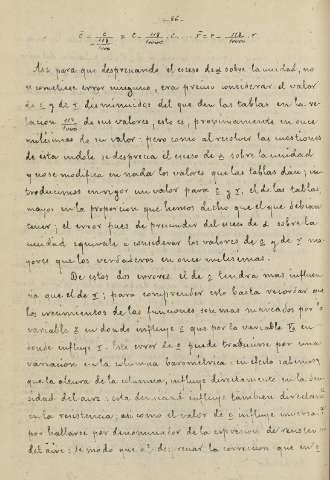 -86-
c̄ = c / (1+ 118/10000) = c - 118/10000 c . . . r̄ = r - 118/10000 r
Así para que despreciando el esceso de α sobre la unidad, no
se cometiese error ninguno, era preciso considerar el valor
de c y de r disminuidos del que dan las tablas en la re-
lacion 118/10000 de sus valores, esto es, proximamente en once
milésimas de su valor: pero como al resolver las cuestiones
de esta indole se desprecia el esceso de α sobre la unidad
y no se modifica en nada los valores que las tablas dan; in-
troducimos en rigor un valor para c y r, el de las tablas
mayor en la proporcion que hemos dicho que el que debian
tener; el error pues de prescindir del esceso de α sobre la
unidad equivale a considerar los valores de c y de r ma-
yores que los verdaderos en once milesimas.
De estos dos errores el de c tendrá mas influen-
cia que el de r; para comprender esto basta recordar que
los crecimientos de las funciones son mas marcados por
variable en donde influye c que por la variable en
donde influye r. Este error de c puede traducirse por una
variacion en la columna barométrica: en efecto sabemos
que la altura de la columna, influye directamente en la den-
sidad del aire: esta densidad influye tambien directam
en la resistencia; asi como el valor de c influye inversam
por hallarse por denominador de la expresion de resisten
del aire: de modo que despreciar la correccion que en